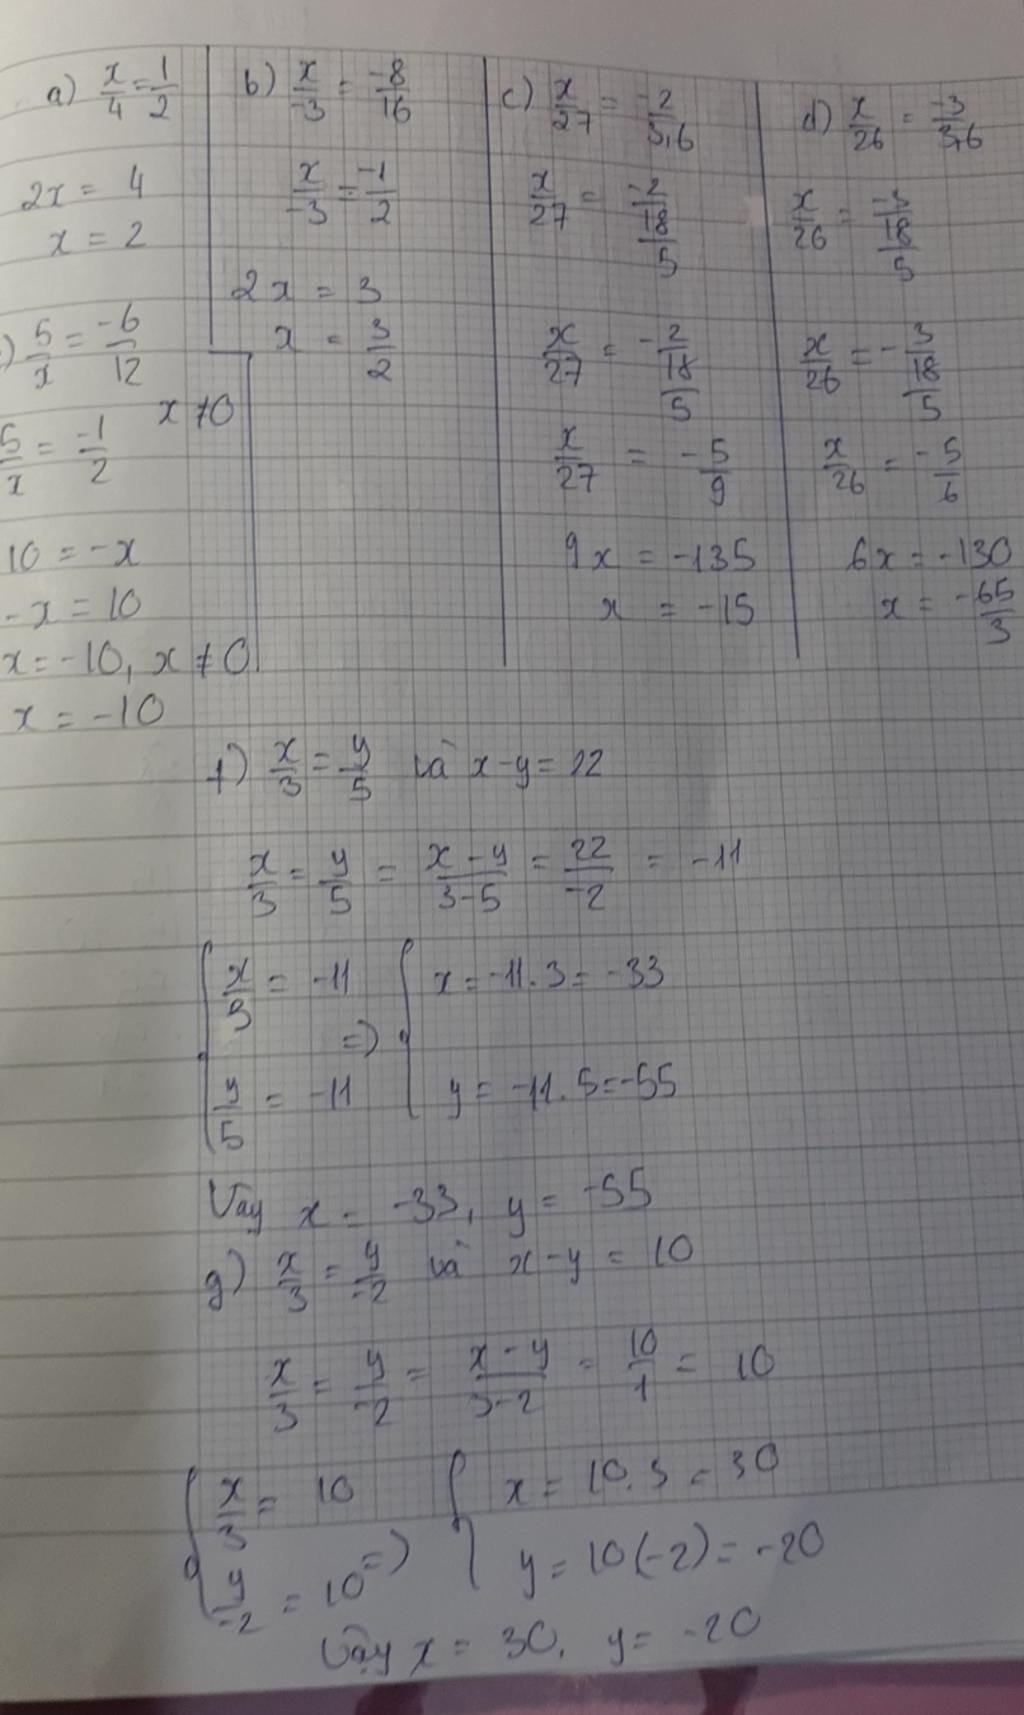 a) x/4 = 1/2
2x = 4
x = 2
b) x/-3 = -8/16
x/-3 = -1/2
2x = 3
x = 3/2
c) x/27 = -2/3,6
x/27 = -2/(18/5)
x/27 = -2/(18/5)
x/27 = -5/9
9x = -135
x = -15
d) x/26 = -3/3,6
x/26 = -3/(18/5)
x/26 = -3/(18/5)
x/26 = -5/6
6x = -130
x = -65/3
) 5/x = -6/12
x ≠ 0
5/x = -1/2
10 = -x
-x = 10
x = -10, x ≠ 0
x = -10
f) x/3 = y/5 và x-y = 22
x/3 = y/5 = x-y/3-5 = 22/-2 = -11
{ x/3 = -11 => { x = -11.3 = -33
y/5 = -11 y = -11.5 = -55
Vậy x = -33, y = -55
g) x/3 = y/-2 và x-y = 10
x/3 = y/-2 = x-y/3-2 = 10/1 = 10
{ x/3 = 10 => { x = 10.3 = 30
y/-2 = 10 y = 10(-2) = -20
Vậy x = 30, y = -20